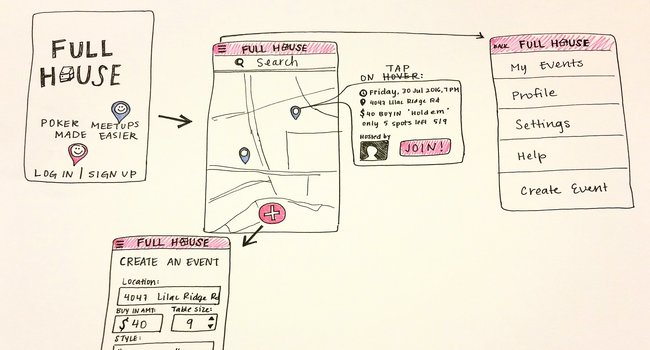 FULL
HOUSE
POKER MEETUPS
MADE EASIER
LOG IN | SIGN UP
FULL HOUSE
Search
TAP
ON HOVER:
Friday, 30 Jul 2016, 7PM
4047 Lilac Ridge Rd
$40 BUYIN 'Hold em'
only 5 spots left 5/9
Hosted by
JOIN!
BACK FULL HOUSE
My Events
Profile
Settings
Help
Create Event
FULL HOUSE
CREATE AN EVENT
Location:
4047 Lilac Ridge Rd
BUY IN AMT: Table Size:
$40 9
STYLE: